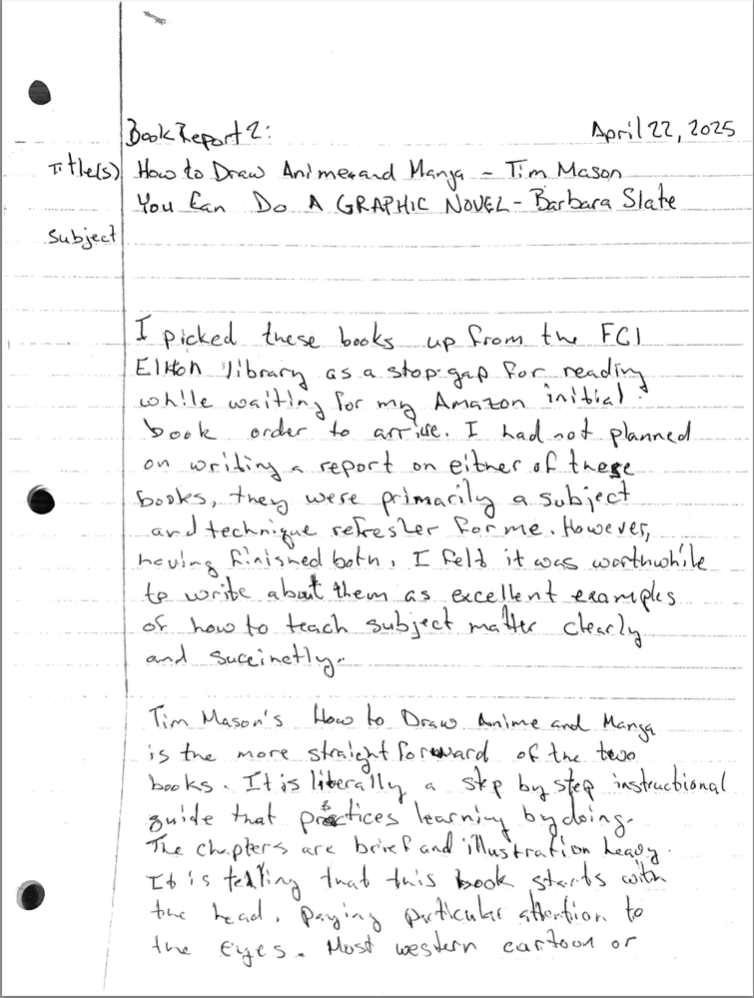 Book Report 2: April 22, 2025
Title(s) How to Draw Anime and Manga - Tim Mason
You Can Do A GRAPHIC NOVEL - Barbara Slate
Subject
I picked these books up from the FCI
Elkton library as a stop gap for reading
while waiting for my Amazon initial
book order to arrive. I had not planned
on writing a report on either of these
books, they were primarily a subject
and technique refresher for me. However,
having finished both, I felt it was worthwhile
to write about them as excellent examples
of how to teach subject matter clearly
and succinctly.
Tim Mason's How to Draw Anime and Manga
is the more straight forward of the two
books. It is literally a step by step instructional
guide that practices learning by doing.
The chapters are brief and illustration heavy.
It is telling that this book starts with
the head, paying particular attention to
the eyes. Most western cartoon or